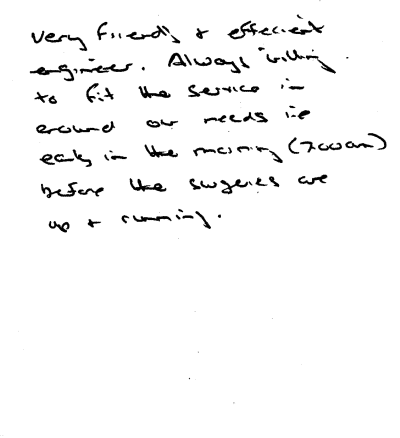 very friendly + effecient
engineer. Always willing
to fit the service in
around our needs i.e
early in the morning (7.00am)
before the surgeries are
up + running.